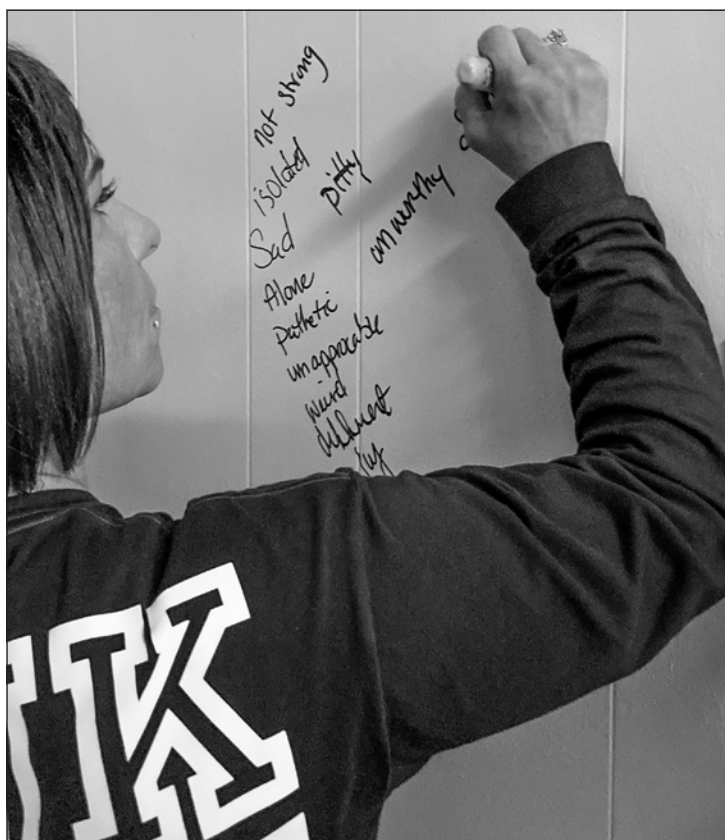 not strong
isolated
pitty
Sad
unworthy
Alone
pathetic
weird
different
K